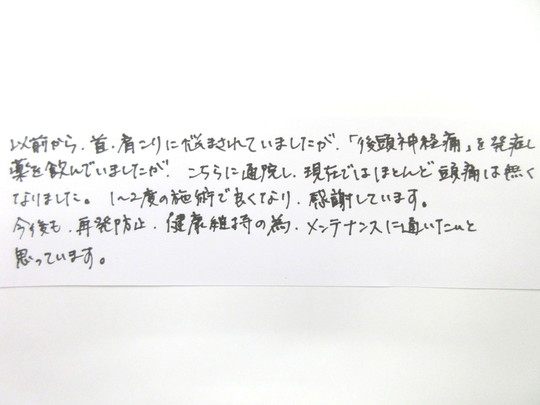 以前から、首、肩こりに悩まされていましたが、「後頭神経痛」を発症し
薬を飲んでいましたが、こちらに通院し、現在ではほとんど頭痛は無く
なりました。1~2度の施術で良くなり、感謝しています。
今後も、再発防止、健康維持の為、メンテナンスに通いたいと
思っています。